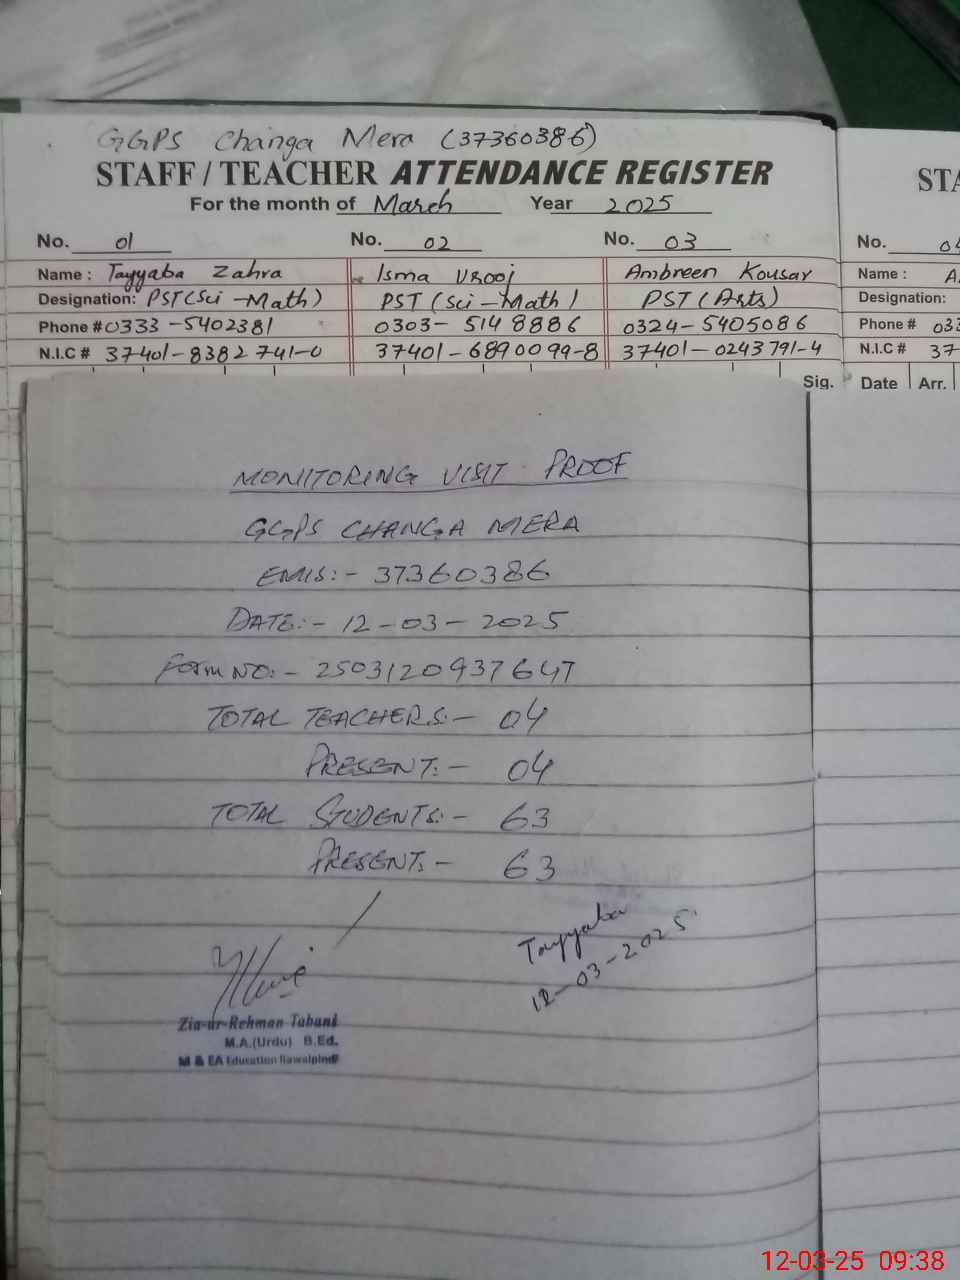 GGPS Changa Mera (37360386)
STAFF / TEACHER ATTENDANCE REGISTER
For the month of March Year 2025
No. 01 No. 02 No. 03
Name : Tayyaba Zahra Isma Urooj Ambreen Kousar
Designation: PST (Sci - Math) PST (Sci - Math) PST (Arts)
Phone # 0333 - 5402381 0303- 5148886 0324-5405086
N.I.C # 37401-8382741-0 37401-6890099-8 37401-0243791-4
Sig.
STA
No. 04
Name : A
Designation:
Phone # 033
N.I.C # 37
Date Arr.
MONITORING VISIT PROOF
GGPS CHANGA MERA
EMIS:- 37360386
DATE:- 12-03-2025
Form NO:- 250312093764T
TOTAL TEACHERS:- 04
PRESENT:- 04
TOTAL STUDENTS:- 63
PRESENT:- 63
Tayyaba
12-03-2025
Zia-ur-Rehman Tabani
M.A.(Urdu) B.Ed.
M & EA Education Rawalpindi
12-03-25 09:38